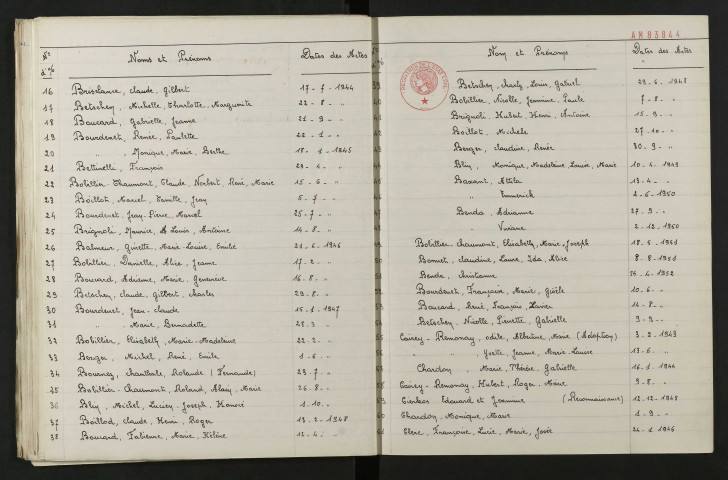 Nº d'o/
Noms et Prénoms
Dates des Actes
16 Brislance, Claude, Gilbert 17-7-1944
17 Betschey, Michelle, Charlotte, Marguerite 22-8- "
18 Boucard, Gabrielle, Jeanne 21-9- "
19 Bourdenet, Renée, Paulette 22-1- "
20 " " Monique, Marie, Berthe 18-1-1945
21 Bettinelli, François 23-4- "
22 Bobillier-Chaumont, Claude Norbert, René, Marie 15-6- "
23 Boillot, Marcel, Camille, Jean 5-7- "
24 Bourdenet, Jean-Pierre, Marcel 25-7- "
25 Brignoli, Maurice, Louis, Antoine 14-8- "
26 Balmeur, Ginette, Marie-Louise, Emilie 21-6-1946
27 Bobillier, Danielle, Alice, Jeanne 17-2- "
28 Boucard, Adrienne, Marie, Geneviève 16-8- "
29 Betschey, Claude, Gilbert, Charles 29-8- "
30 Bourdenet, Jean-Claude 15-1-1947
31 " Marie Bernadette 28-3- "
32 Bobillier, Elisabeth, Marie-Madeleine 22-2- "
33 Berger, Michel, René, Emile 1-6- "
34 Bournez, Chantale, Rolande (Fernande) 23-7- "
35 Bobillier-Chaumont, Roland, Alain, Marie 26-8- "
36 Bliy, Michel, Lucien, Joseph, Honoré 1-10- "
37 Boillod, Claude, Henri, Roger 13-2-1948
38 Boucard, Fabienne, Marie, Hélène 12-4- "
AM83844
Nom et Prénoms
Dates des Actes
39 Betschey, Charly, Louis, Gabriel 29-6-1948
40 Bobillier, Nicolle, Jeannine, Paule 7-8- "
41 Brignoli, Hubert, Henri, Antoine 15-9- "
42 Boillot, Michèle 27-10- "
Berger, Claudine, Renée 30-9- "
Bliy, Monique, Madeleine, Louise, Marie 10-4-1949
45 Baxant, Attila 13-4- "
" Emmerick 2-6-1950
47 Benda, Adrianne 27-9- "
" Viviane 2-12-1950
Bobillier-Chaumont, Elisabeth, Marie-Joseph 18-5-1951
Bonnet, Claudine, Laure, Ida, Alice 8-8-1951
Benda, Christianne -4-1952
Bourdenet, Françoise, Marie, Gisèle 10-6- "
Boucard, René, François, Xavier 14-8- "
Betschey, Nicolle, Pierrette, Gabrielle 9-9- "
Cairey-Remonay, Odile, Albertine, Marie (Adoption) 3-2-1943
" " Yvette, Jeanne, Marie-Laurence 13-6- "
Chardon, Marie, Thérèse, Gabrielle 16-1-1944
Cairey-Remonay, Hubert, Roger, Marie 9-8- "
59 Cunkos Edouard et Jeannine (Reconnaissance) 12-12-1948
60 Chardon, Monique, Marie 1-9- "
61 Clerc, Françoise, Lucie, Marie, Josée 24-1-1946